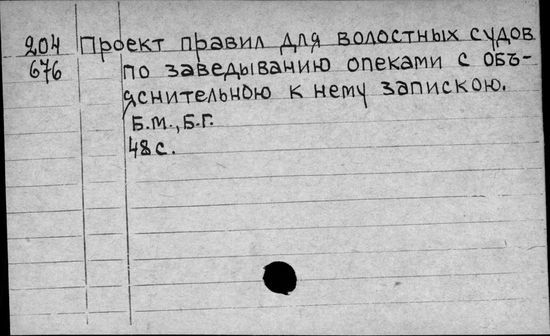 204 Проект правил для волостных судов
676 по заведыванию опеками с объ-
яснительною к нему запискою.
Б.м., Б.г.
48 с.